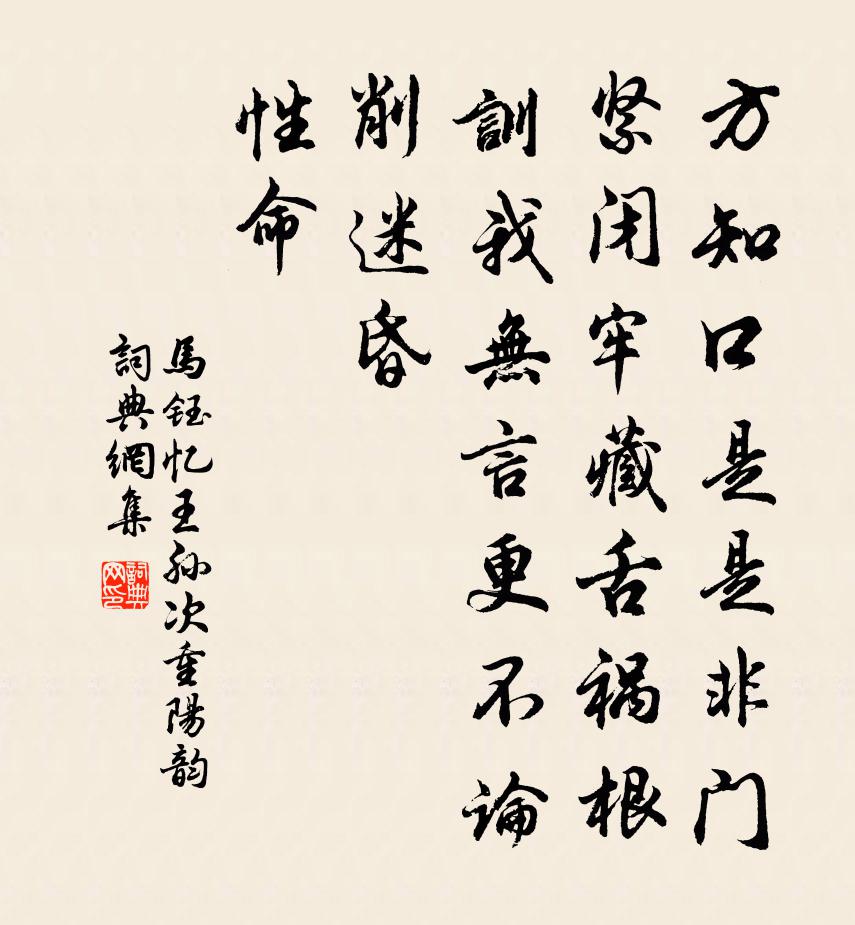 方知口是是非门
紧闭牢藏舌祸根
訓我無言更不論
削迷昏
性命
馬鈺忆王孙次重陽韵
詞典網集
詞典网印